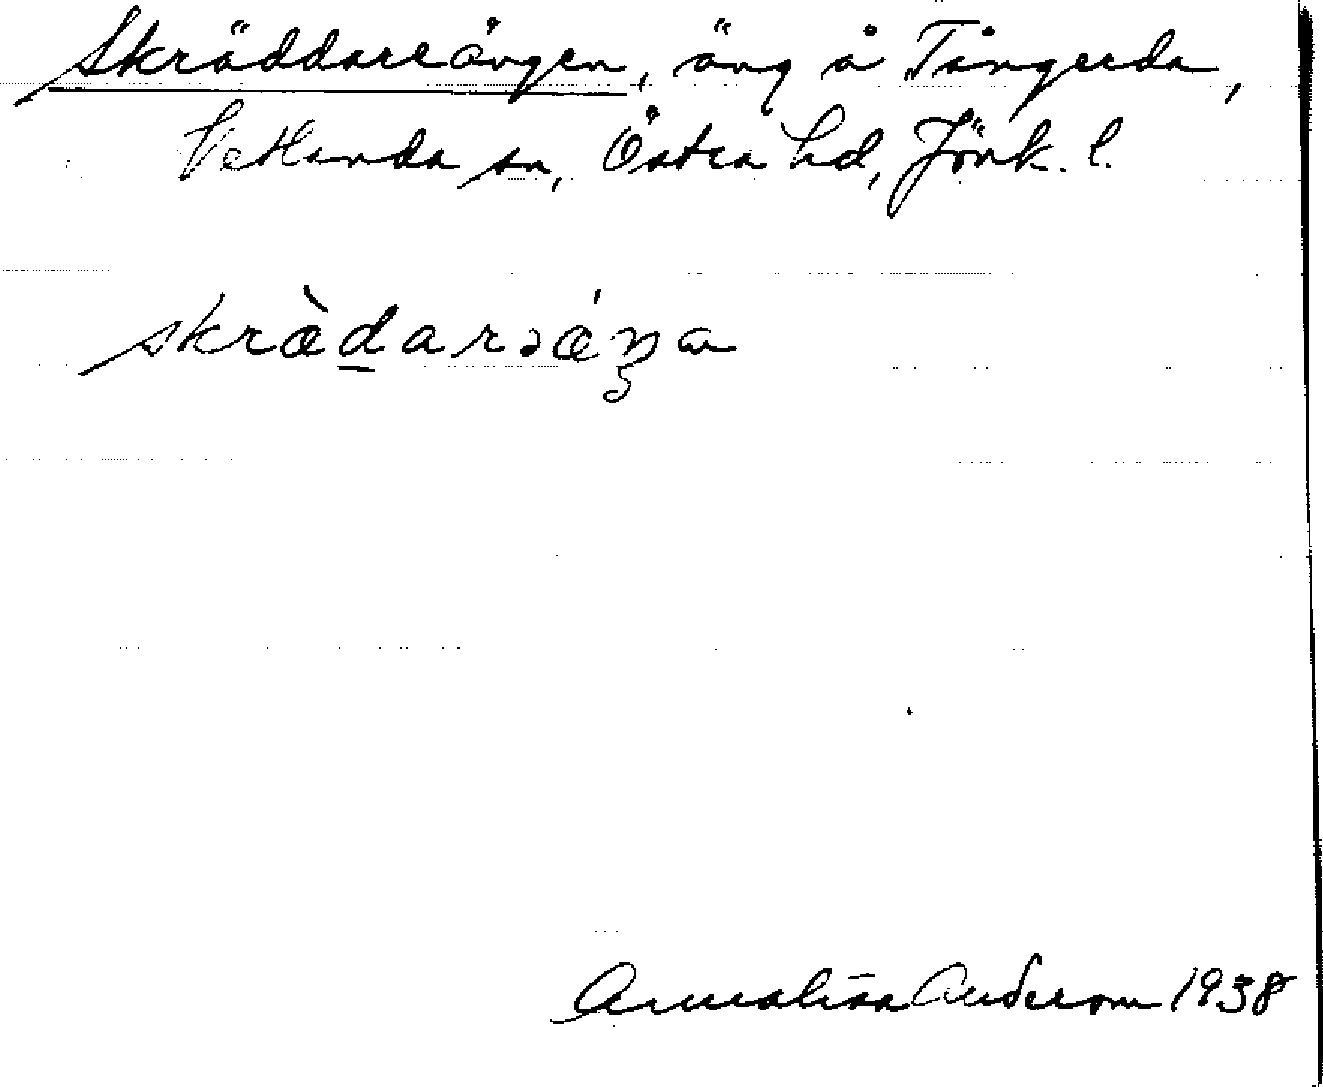 Skräddareängen, äng å Tångerda,
Vetlanda sn, Östra hd, Jönk. l.
skræ̀d̲arəǽŋa
Annalisa Anderson 1938